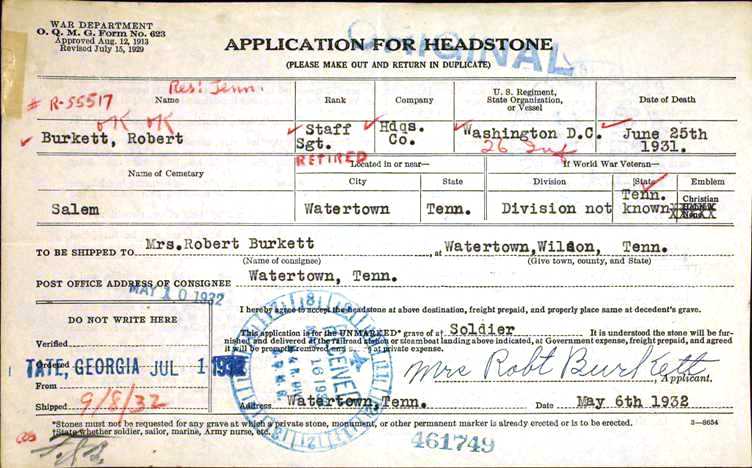 WAR DEPARTMENT
O. Q. M. G. Form No. 623
Approved Aug. 12, 1913
Revised July 15, 1929
ORIGINAL
APPLICATION FOR HEADSTONE
(PLEASE MAKE OUT AND RETURN IN DUPLICATE)
Res: Tenn.
# R-55517
Name
Rank
Company
U. S. Regiment, State Organization, or Vessel
Date of Death
OK OK
Burkett, Robert
Staff Sgt.
Hdqs. Co.
Washington D.C.
26 Inf
June 25th 1931.
RETIRED
Name of Cemetary
Located in or near—
If World War Veteran—
City
State
Division
State
Emblem
Salem
Watertown
Tenn.
Division not known
Tenn.
Christian
TO BE SHIPPED TO Mrs.Robert Burkett, at Watertown,Wilson, Tenn.
(Name of consignee) (Give town, county, and State)
POST OFFICE ADDRESS OF CONSIGNEE Watertown, Tenn.
MAY 10 1932
DO NOT WRITE HERE
Verified
Ordered
TATE, GEORGIA JUL 1 1932
From
Shipped 9/8/32
I hereby agree to accept the headstone at above destination, freight prepaid, and properly place same at decedent's grave.
This application is for the UNMARKED* grave of a† Soldier. It is understood the stone will be furnished and delivered at the railroad station or steamboat landing above indicated, at Government expense, freight prepaid, and agreed it will be promptly removed and at private expense.
Mrs Robt Burkett, Applicant.
Address Watertown,Tenn. Date May 6th 1932
*Stones must not be requested for any grave at which a private stone, monument, or other permanent marker is already erected or is to be erected.
†State whether soldier, sailor, marine, Army nurse, etc.
3—8654
461749